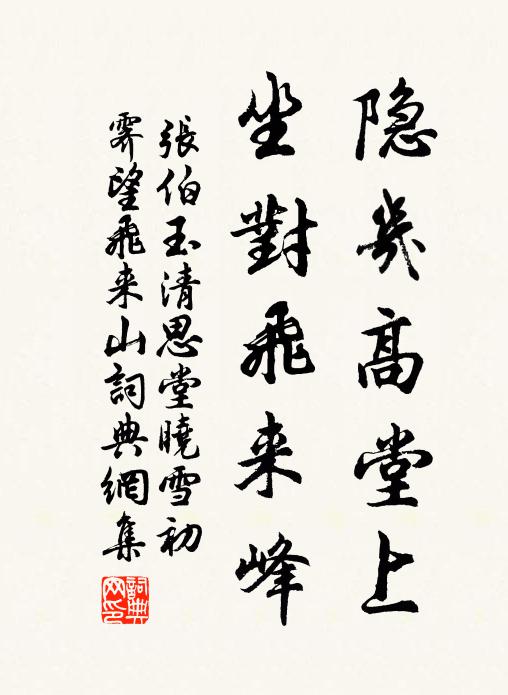 隐幾高堂上
坐對飛来峰
張伯玉清思堂曉雪初
霽望飛来山詞典網集
詞典网印